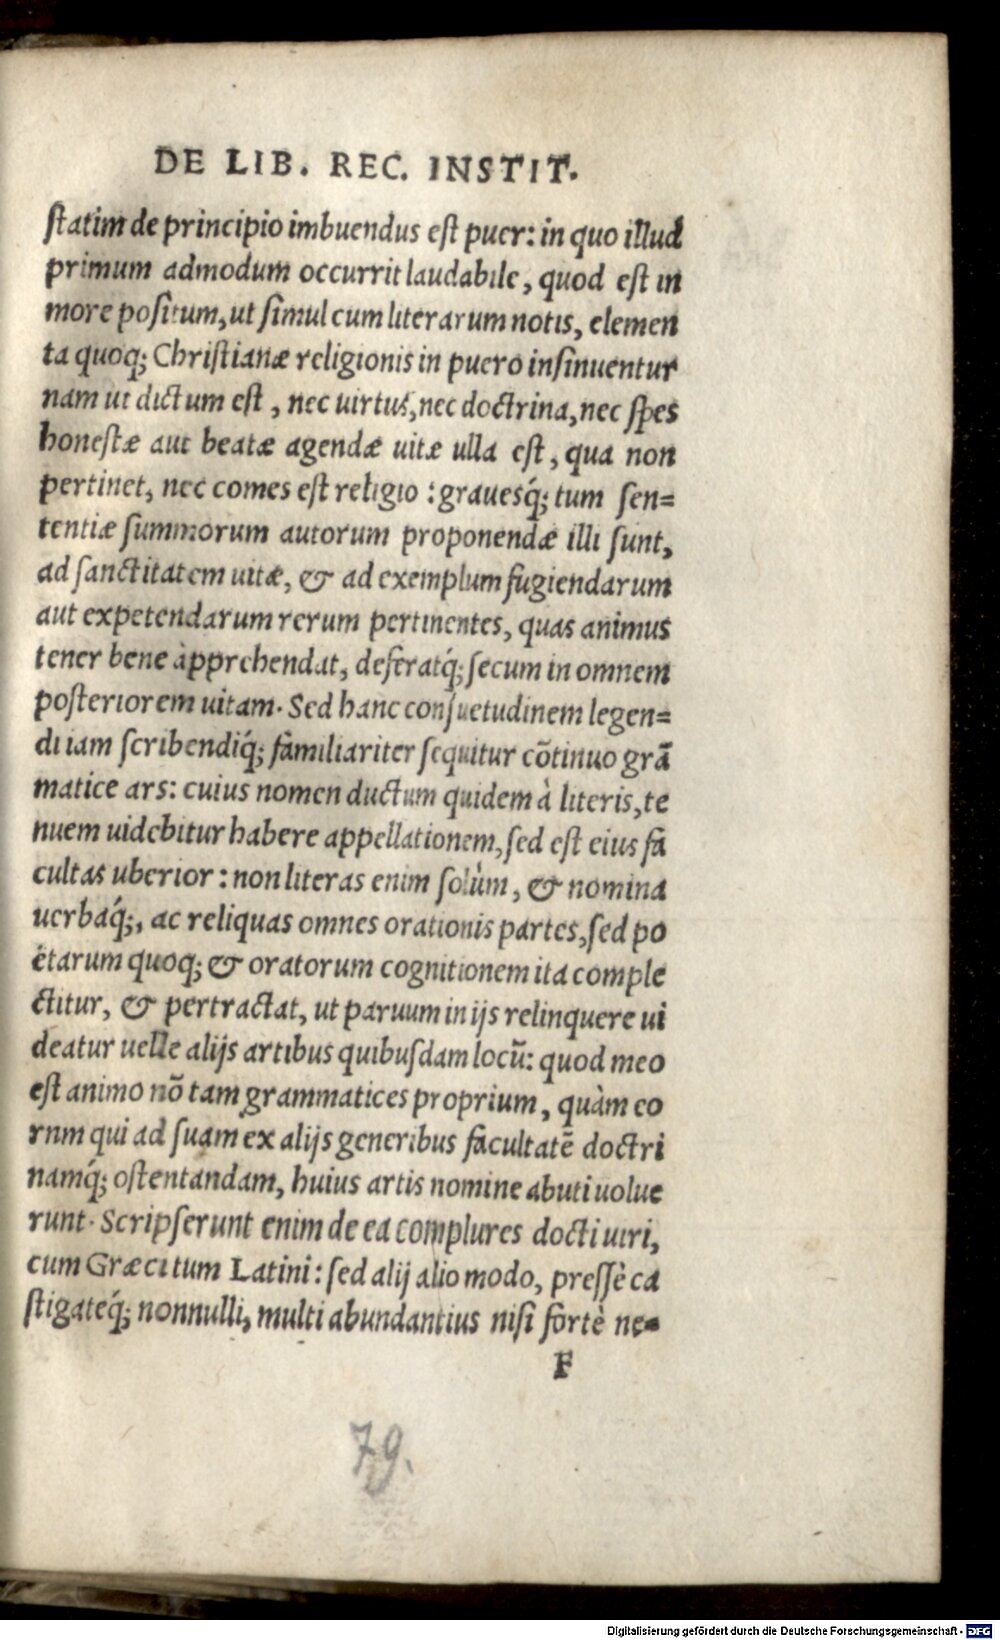 DE LIB. REC. INSTIT.
statim de principio imbuendus est puer: in quo illud
primum admodum occurrit laudabile, quod est in
more positum, ut simul cum literarum notis, elemen
ta quoq; Christianæ religionis in puero insinuentur
nam ut dictum est, nec uirtus, nec doctrina, nec spes
honestæ aut beatæ agendæ uitæ ulla est, qua non
pertinet, nec comes est religio: grauesq́; tum sen=
tentiæ summorum autorum proponendæ illi sunt,
ad sanctitatem uitæ, & ad exemplum fugiendarum
aut expetendarum rerum pertinentes, quas animus
tener bene apprehendat, deferatq́; secum in omnem
posteriorem uitam. Sed hanc consuetudinem legen=
di iam scribendiq́; familiariter sequitur cõtinuo grã
matice ars: cuius nomen ductum quidem à literis, te
nuem uidebitur habere appellationem, sed est eius fa
cultas uberior: non literas enim solùm, & nomina
uerbaq́;, ac reliquas omnes orationis partes, sed po
ëtarum quoq; & oratorum cognitionem ita comple
ctitur, & pertractat, ut paruum in ijs relinquere ui
deatur uelle alijs artibus quibusdam locũ: quod meo
est animo nõ tam grammatices proprium, quàm eo
rnm qui ad suam ex alijs generibus facultatẽ doctri
namq́; ostentandam, huius artis nomine abuti uolue
runt. Scripserunt enim de ea complures docti uiri,
cum Græci tum Latini: sed alij alio modo, pressè ca
stigateq́; nonnulli, multi abundantius nisi fortè ne=
F
79.
Digitalisierung gefördert durch die Deutsche Forschungsgemeinschaft - DFG